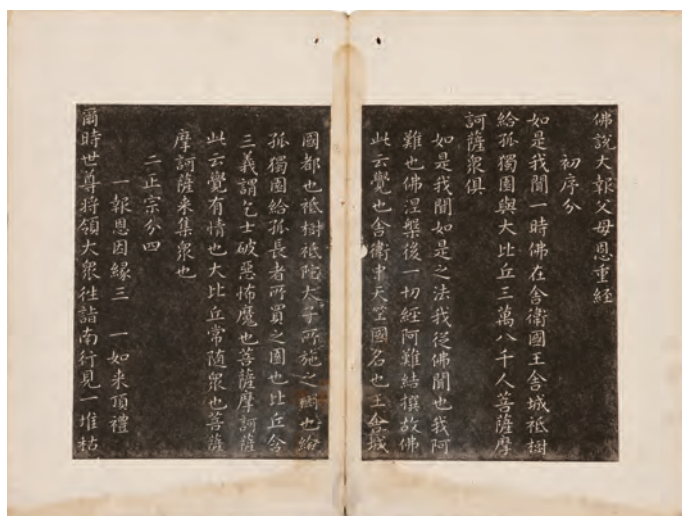 佛說大報父母恩重経
初序分
如是我聞一時佛在舎衛國王舎城祇樹
給孤獨園與大比丘三萬八千人菩薩摩
訶薩衆俱
如是我聞如是之法我従佛聞也我阿
難也佛涅槃後一切経阿難結撰故佛
此云覺也舎衛中天笁國名也王舎城
國都也祇樹祇陀太子所施之樹也給
孤獨園給孤長者所買之園也比丘含
三義謂乞士破惡怖魔也菩薩摩訶薩
此云覺有情也大比丘常随衆也菩薩
摩訶薩来集衆也
二正宗分四
一報恩因縁三　一如来頂禮
爾時世尊将領大衆徃詣南行見一堆枯